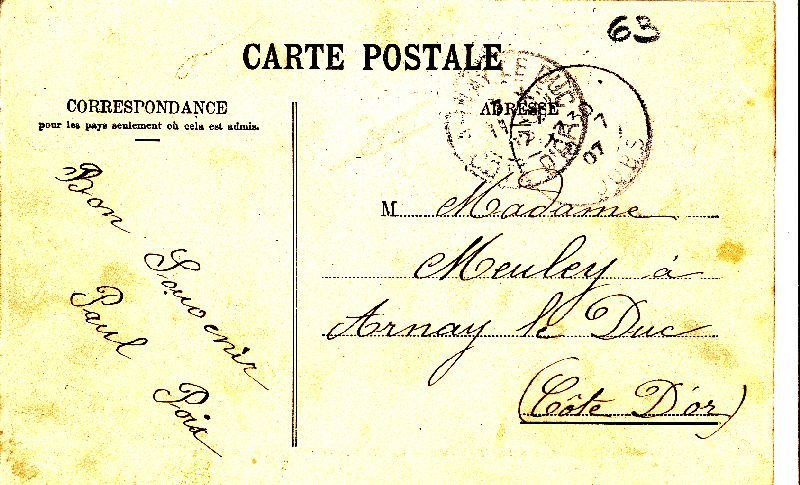 63
CARTE POSTALE
CORRESPONDANCE
pour les pays seulement où cela est admis.
ADRESSE
M Madame
Meuley à
Arnay le Duc
(Côte D'or)
Bon Souvenir
Paul